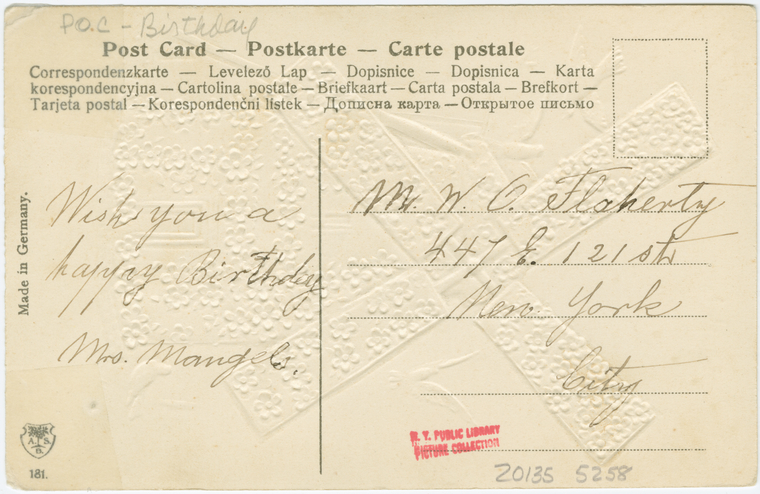 P.O.C - Birthday
Post Card — Postkarte — Carte postale
Correspondenzkarte — Levelező Lap — Dopisnice — Dopisnica — Karta
korespondencyjna — Cartolina postale — Briefkaart — Carta postala — Brefkort —
Tarjeta postal — Korespondenční lístek — Дописна карта — Открытое письмо
Made in Germany.
Wish you a
happy Birthday
Mrs. Mangels.
Mr. W. O. Flaherty
447 E. 121 str
New York
City
A. S.
B.
181.
N. Y. PUBLIC LIBRARY
PICTURE COLLECTION
Z0135 5258